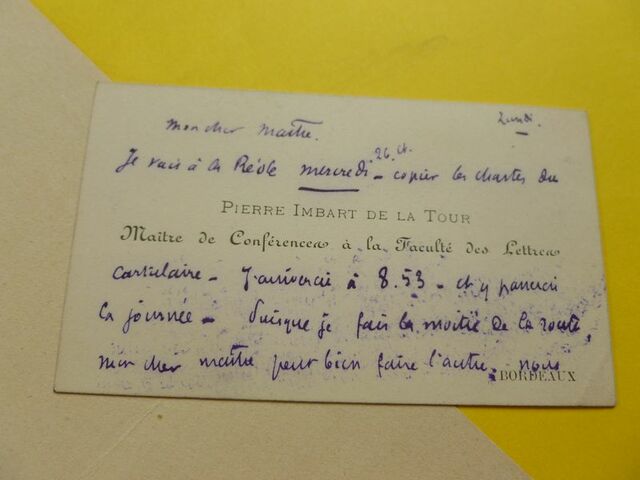 Lundi.
Mon cher maître.
Je vais à la Réole mercredi 26 ct. – copier les chartes du
PIERRE IMBART DE LA TOUR
Maître de Conférences à la Faculté des Lettres
Cartulaire – J'arriverai à 8.53 – et y passerai
la journée – Puisque je fais la moitié de la route,
mon cher maître peut bien faire l'autre. nous
BORDEAUX